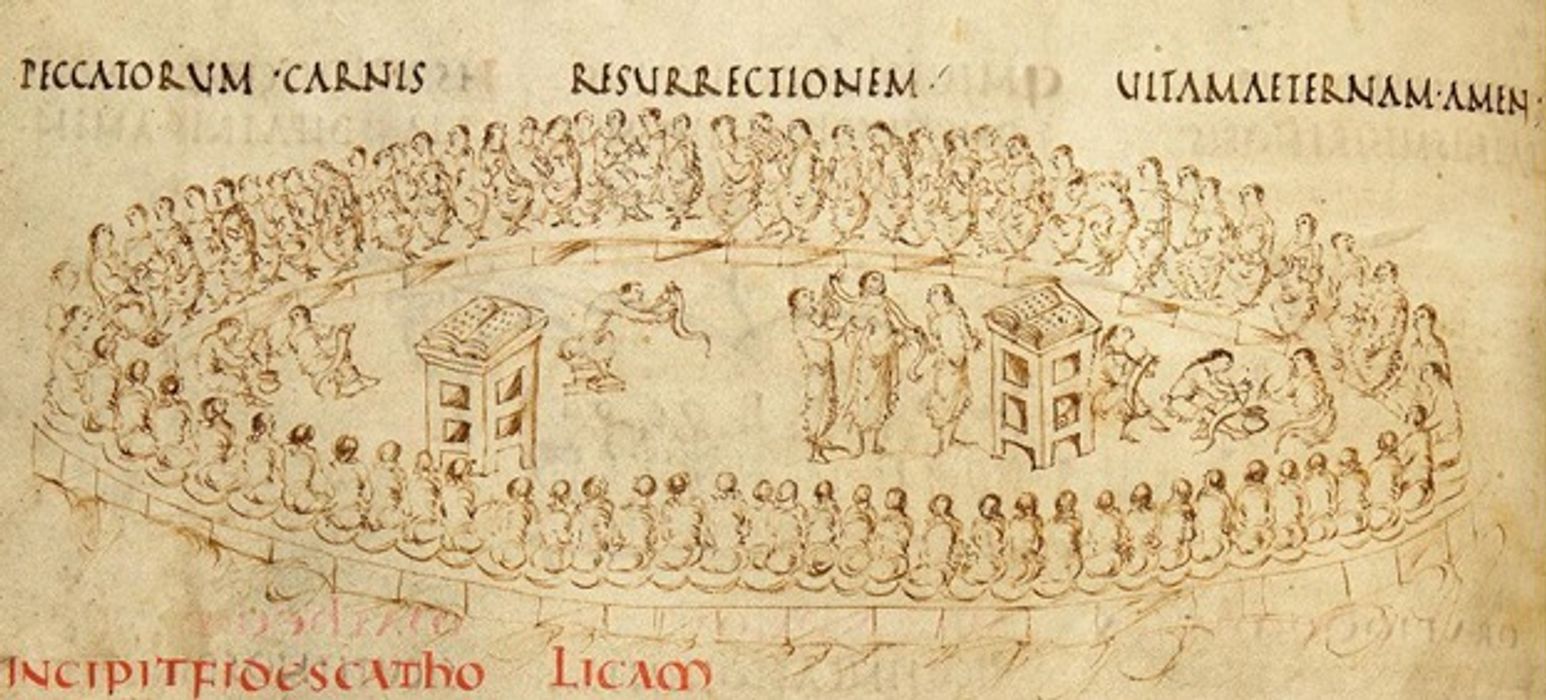 PECCATORUM · CARNIS RESURRECTIONEM · UITAMAETERNAM · AMEN ·
INCIPITFIDESCATHO LICAM